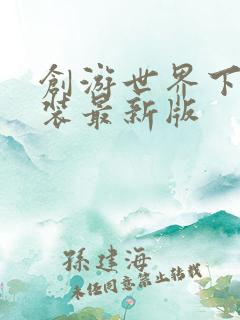 創游世界下
装最新版
孫建海
未任同意禁止转载